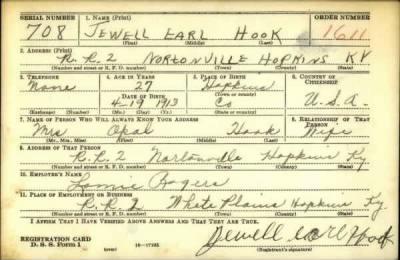 SERIAL NUMBER 1. NAME (Print) ORDER NUMBER
708 JEWELL EARL HOOK 1611
(First) (Middle) (Last)
2. ADDRESS (Print)
R.R.2 NORTONVILLE HOPKINS KY
(Number and street or R. F. D. number) (Town) (County) (State)
3. TELEPHONE 4. AGE IN YEARS 5. PLACE OF BIRTH 6. COUNTRY OF CITIZENSHIP
None 27 Hopkins
DATE OF BIRTH (Town or county)
4-19 1913 Co U.S.A.
(Exchange) (Number) (Mo.) (Day) (Yr.) (State or country)
7. NAME OF PERSON WHO WILL ALWAYS KNOW YOUR ADDRESS 8. RELATIONSHIP OF THAT PERSON
Mrs Opal Hook Wife
(Mr., Mrs., Miss) (First) (Middle) (Last)
9. ADDRESS OF THAT PERSON
R.R.2 Nortonville Hopkins Ky
(Number and street or R. F. D. number) (Town) (County) (State)
10. EMPLOYER'S NAME
Lonnie Rogers
11. PLACE OF EMPLOYMENT OR BUSINESS
R.R.2 White Plains Hopkins Ky
(Number and street or R. F. D. number) (Town) (County) (State)
I AFFIRM THAT I HAVE VERIFIED ABOVE ANSWERS AND THAT THEY ARE TRUE.
REGISTRATION CARD
D. S. S. FORM 1 16—17105 Jewell Earl Hook
(Registrant's signature)